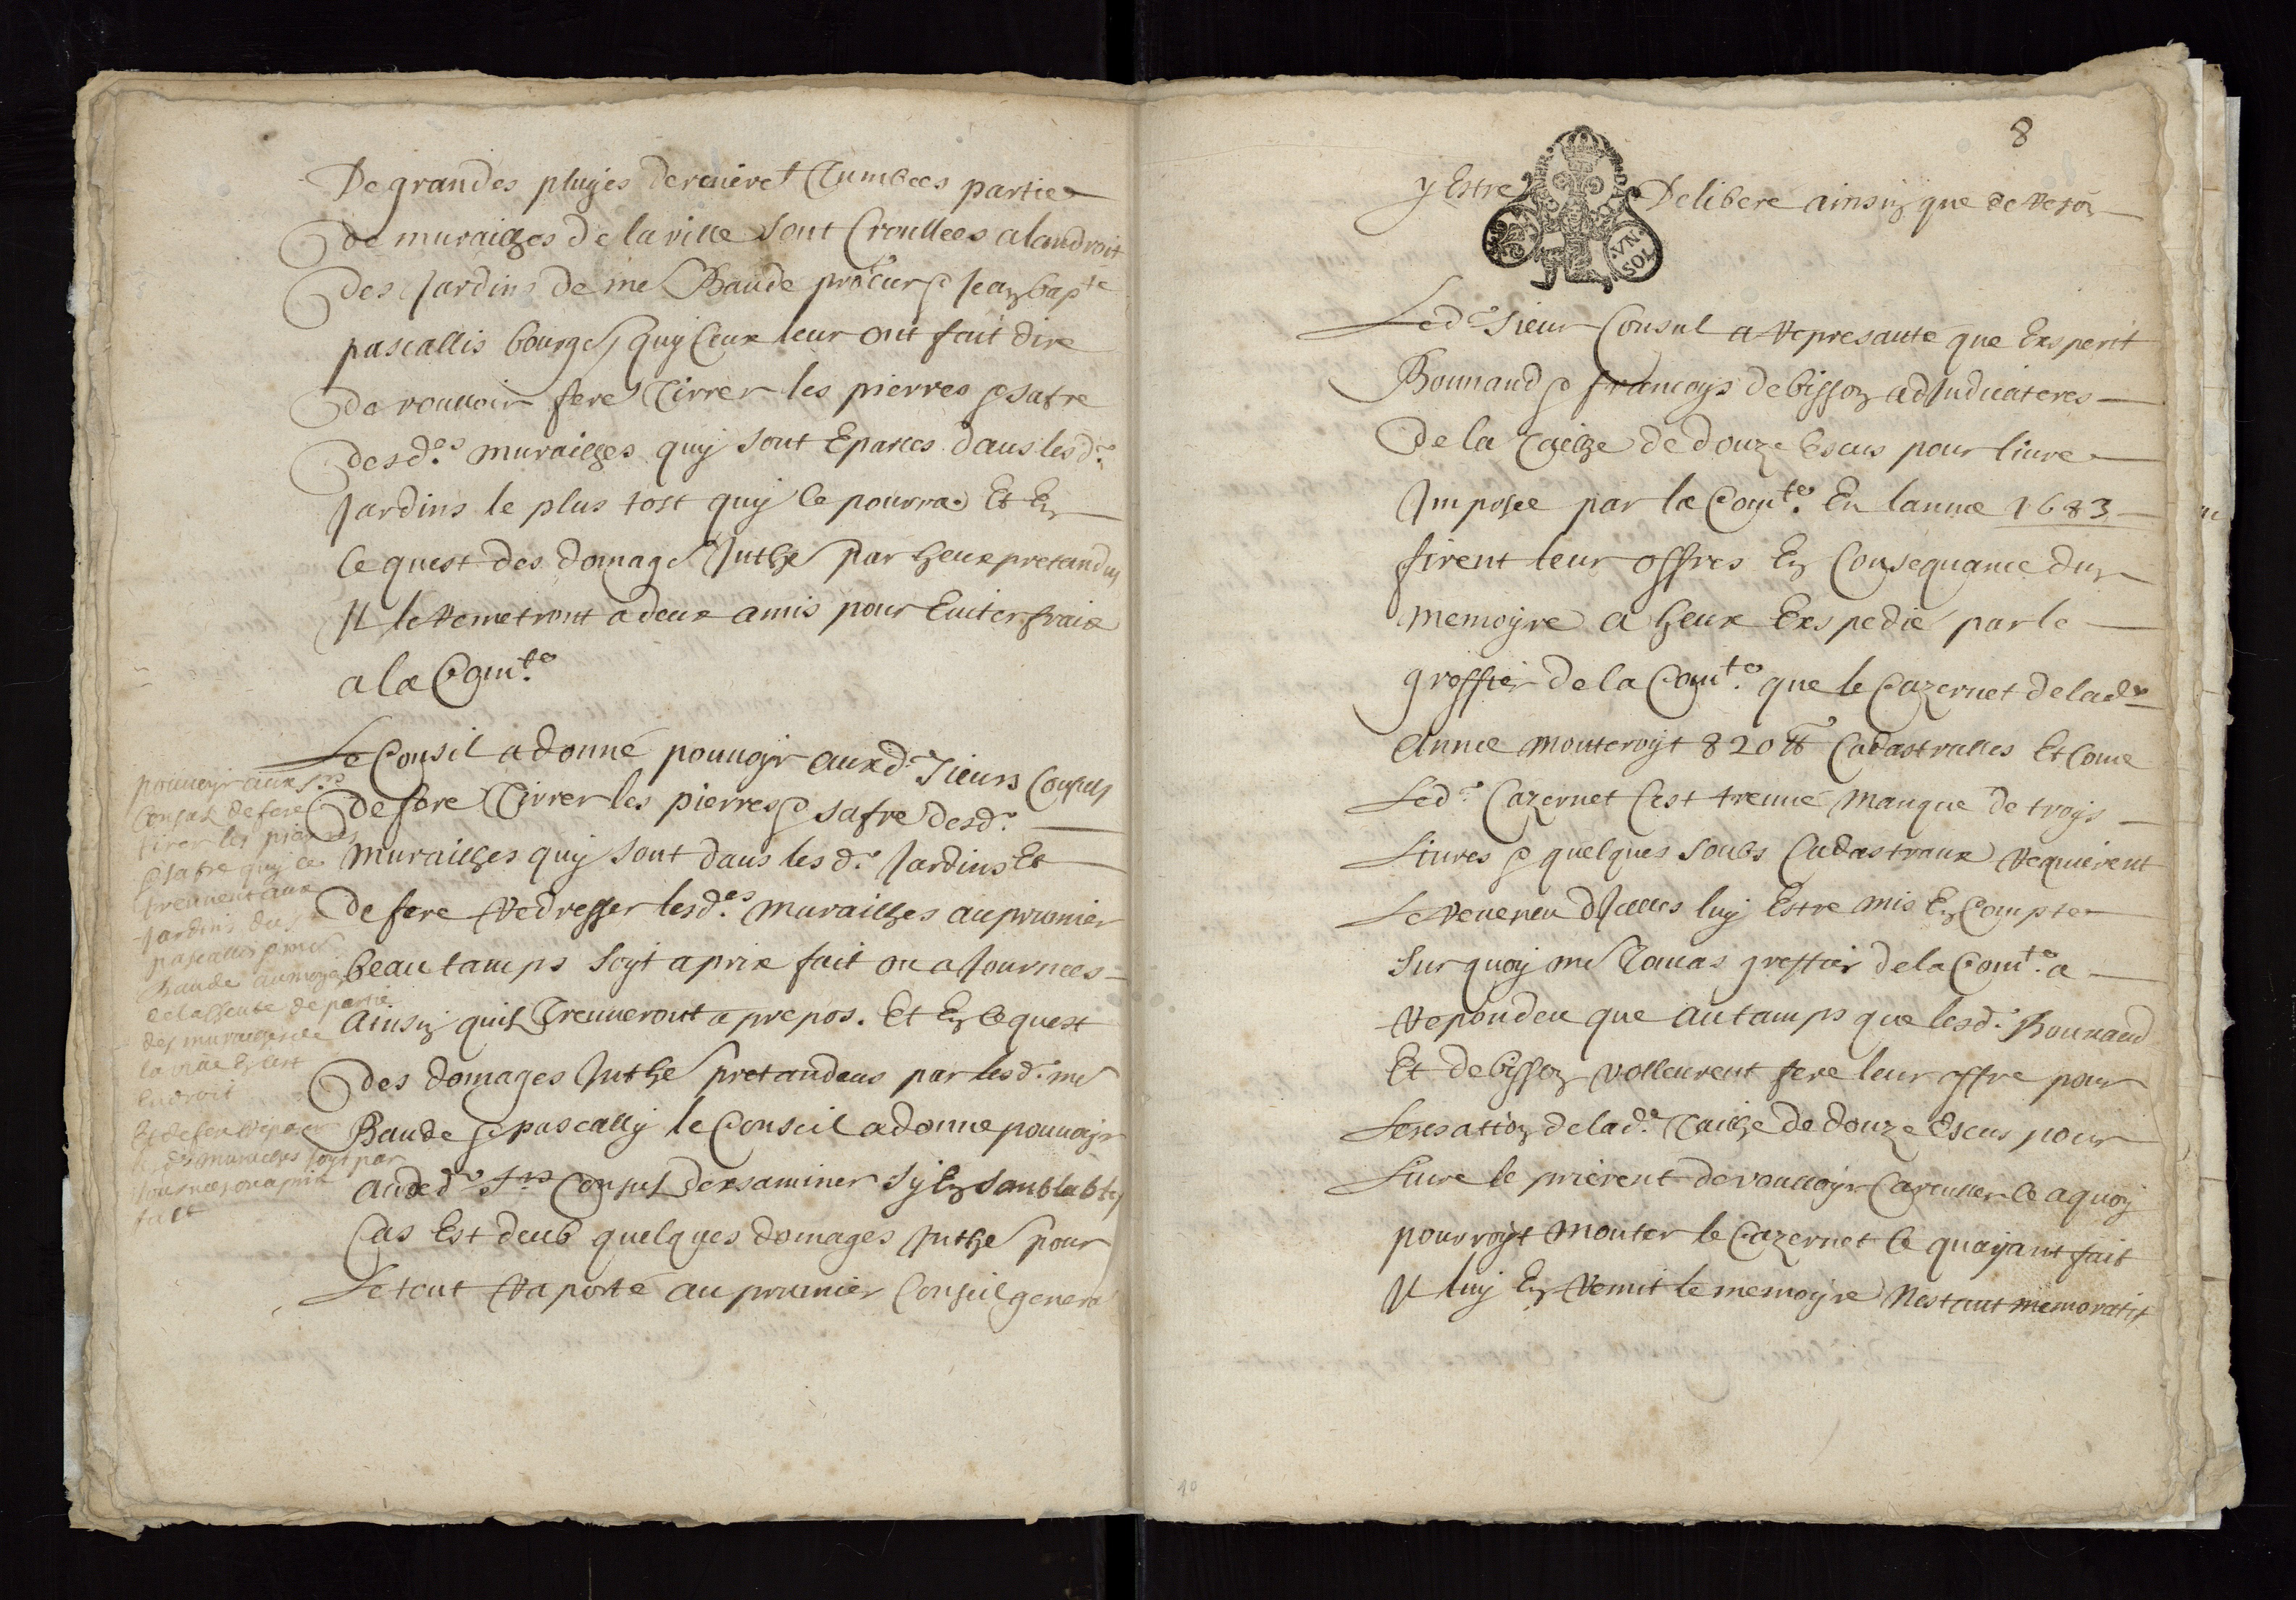 De grandes pluyes dernieret tumbées partie
de murailhes de la ville sont Croullees a landroit
des Jardins de me Baude procur & Jean bapte
pascallis bourgs quy Ceux leur ont fait dire
de voulloir fere tirrer les pierres & safre
desd.es murailhes quy sont Eparces dans lesd.
Jardins le plus tost quy ce pourra Et En
ce quest des domages Inths par heux pretandus
Il le Remetront a deux amis pour Eviter fraix
a la Comte.
Le Conseil a donné pouuoyr auxd. sieurs Consuls
de fere tirrer les pierres & safre desd.
murailhes quy sont dans lesd. Jardins Et
de fere Redresser lesd.es murailhes au premier
beau tamps soyt a prix fait ou a Journees
ainsin quils treuueront a prepos. Et En ce quest
des domages Inths pretandeus par lesd. me
Baude & pascally le Conseil a donne pouuoyr
auxd. srs Consuls dexsaminer sy En samblables
Cas Est deub quelques domages Inths pour
le tout Raporté au premier Conseil general
pouuoyr aux srs
Consuls de fere
tirer les pierres
& safre quy ce
treuuent aux
Jardins des
pascallis & me
Baude au moyen
de la cheute de partie
des murailhes de
la ville En cest
endroit
Et de fere reparer
lesd.es murailhes soyt par
Journees ou a prix
fait
8
y Estre Delibere ainsin que de Reson
VN SOL
Led. sieur Consul a Represanté que Exsperit
Bounaud & francoys debisson adjudicateres
De la tailhe de douze Escus pour liure
Imposee par la Comte. En lannee 1683
firent leur offres En Consequance dun
memoyre a heux Exspedié par le
greffier de la Comte. que le Cazernet de lade
Annee monteroyt 820 lt Cadastralles Et Come
Led. Cazernet C'est treuué manque de troys
Liures & quelques soubs Cadastraux Requierent
Le Reuenu d'Icelles luy Estre mis En Compte
Sur quoy me Tomas greffier de la Comte. a
Repondeu que au tamps que lesd. Bounaud
Et debisson volleurent fere leur offre pour
Lexsation de lad. tailhe de douze Escus pour
Liure le prierent de voulloyr Carculler Ce a quoy
pourroyt monter le Cazernet Ce quayant fait
Il luy En Remit le memoyre Nestant memoratif
10